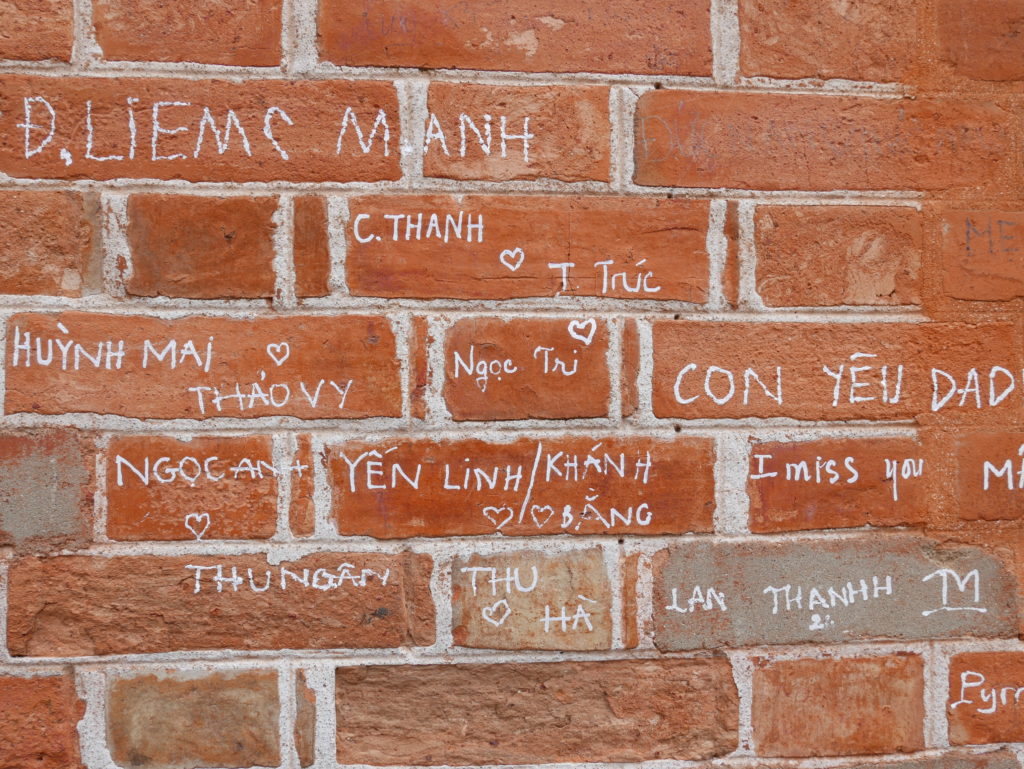 Đ.LIEMC MANH
C.THANH
T Trúc
HUỲNH MAI
THẢO VY
Ngọc Trí
CON YÊU DAD
NGỌC ANH
YẾN LINH/KHÁNH
B.ẰNG
I miss you
THU NGÂN
THU
HÀ
LAN THANHH
M